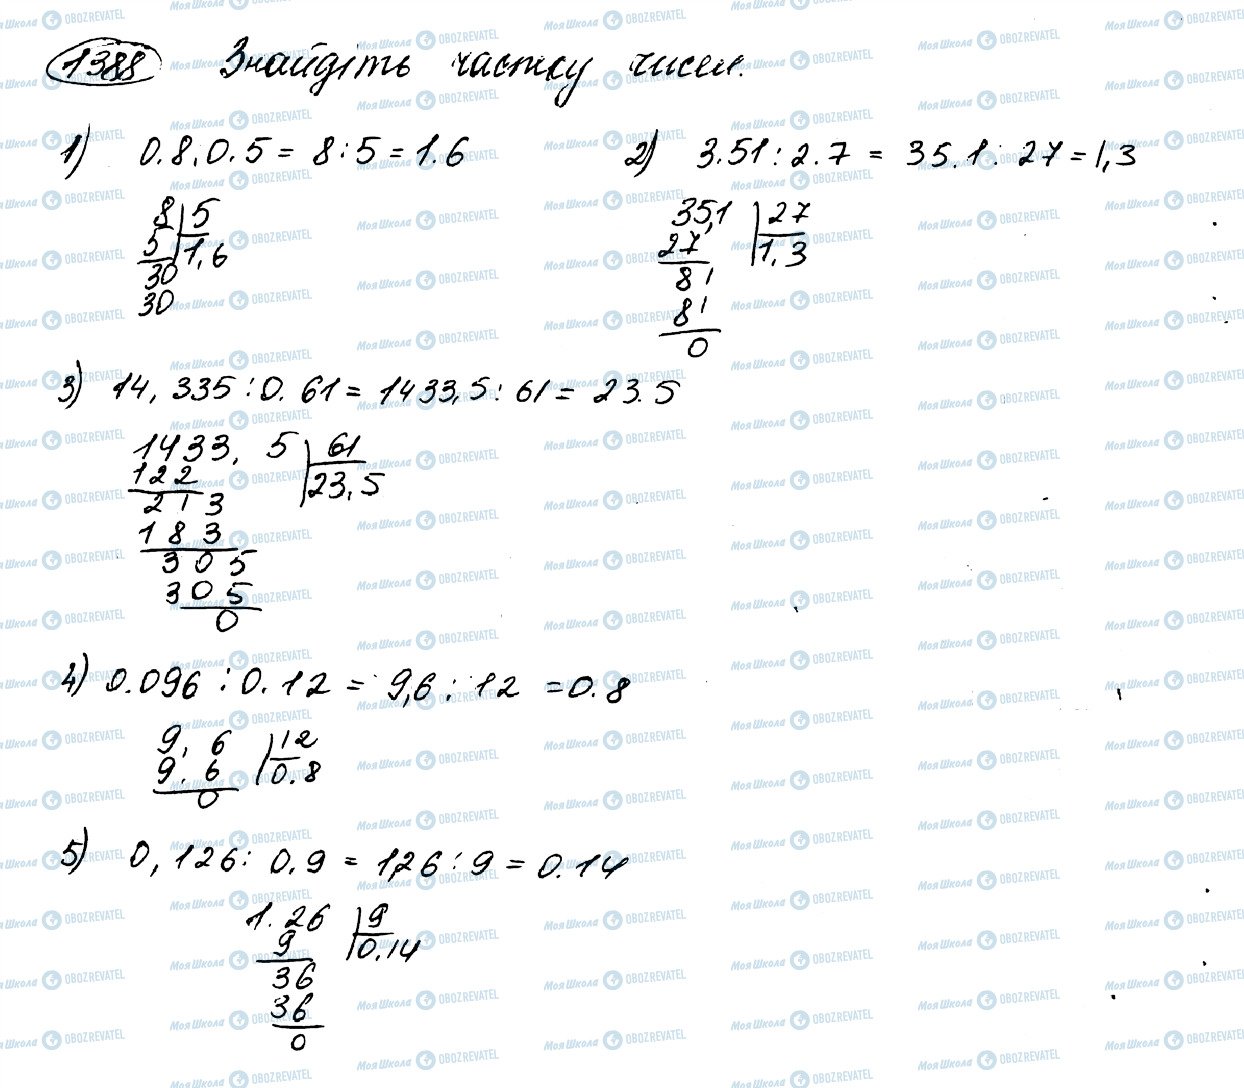 1388 Знайдіть частку чисел.
1) 0.8:0.5 = 8:5 = 1.6
8 5
5 1,6
30
30
2) 3.51:2.7 = 35.1:27 = 1,3
35,1 27
27 1,3
81
81
0
3) 14,335:0.61 = 1433,5:61 = 23.5
1433,5 61
122 23,5
213
183
305
305
0
4) 0.096:0.12 = 9,6:12 = 0.8
9,6 12
9.6 0.8
0
5) 0,126:0.9 = 1,26:9 = 0.14
1.26 9
9 0.14
36
36
0
Моя Школа OBOZREVATEL